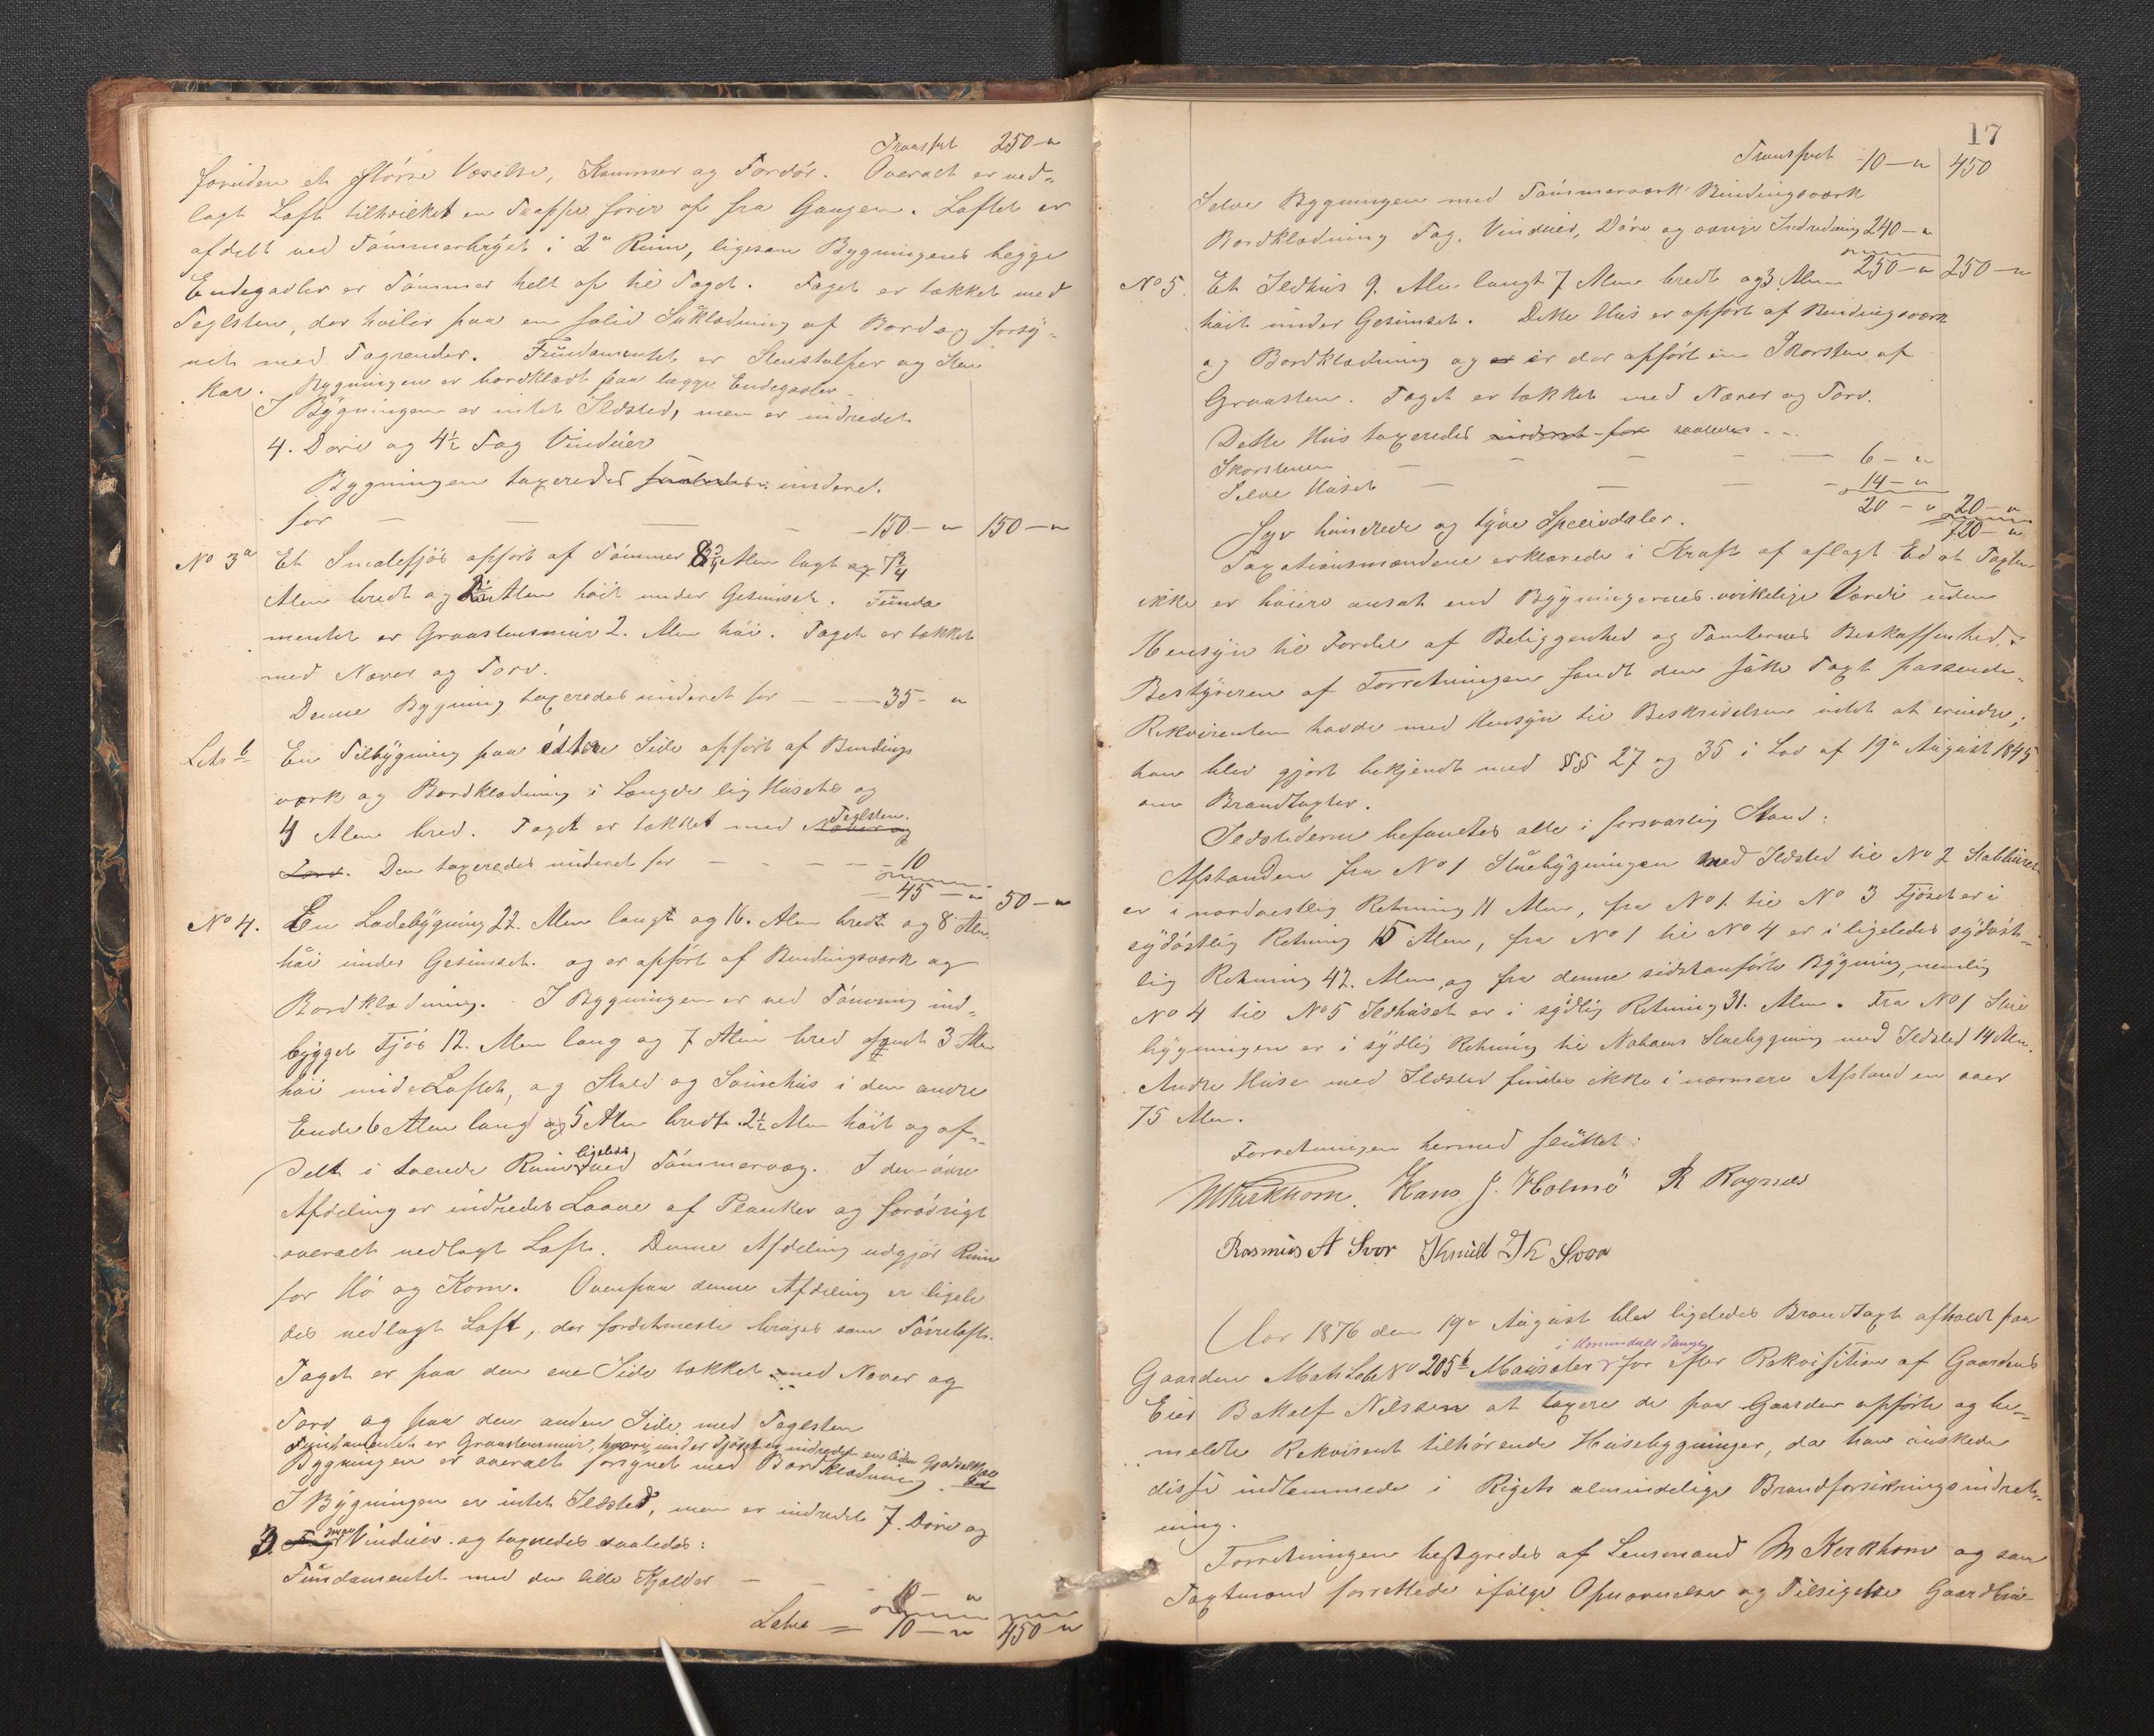 Transport 250 — "
foruden et större Værelse, Kammer og Fordör. Overalt er ned-
lagt Loft tilhvilket en Trappe förer op fra Gangen. Loftet er
afdelt ved Tömmerbryst i 2de Rum, ligesom Bygningens begge
Endegavler er Tömmer helt op til Taget. Taget er tækket med
Teglsten, der hviler paa en solid Suklædning af Bord og forsy-
net med Tagrender. Fundamentet er Stenstolper og Sten
kar. Bygningen er bordklædt paa begge Endegavler
I Bygningen er intet Ildsted, men er indredet
4. Döre og 4½ Fag Vinduer
Bygningen taxeredes saaledes: underet.
for — — — — 150 — " 150 — "
No 3a Et Smalefjös opfört af Tömmer 8¾ Alen lagt og 7¾
Alen bredt og 2½ Alen höit under Gesimset. Funda
mentet er Graastensmur 2. Alen höi. Taget er tækket
med Næver og Torv.
Denne Bygning taxeredes underet for — — — 35 — "
Litr b En Tilbygning paa östre Side opfört af Bindings
værk og Bordklædning i Længde lig Husets og
4 Alen bred. Taget er tækket med Næver og Teglsten.
Torv. Den taxeredes underet for — — — — 10
45 — " 50 — "
No 4. En Ladebygning 22. Alen langt og 16. Alen bredt og 8 Alen
höi under Gesimset. og er opfört af Bindingsværk og
Bordklædning. I Bygningen er ved Tömring ind-
bygget Fjös 12. Alen lang og 7 Alen bred samt 3 Alen
höi under Loftet, og Stald og Svinehus i den andre
Ende 6 Alen lang og 5 Alen bredt 2½ Alen höit og af-
delt i tvende Rum ligeledes ved Tömmervæg. I den övre
Afdeling er indredet Laave af Planker og forövrigt
overalt nedlagt Loft. Denne Afdeling udgjör Rum
for Hö og Korn. Ovenpaa denne Afdeling er ligele
des nedlagt Loft, der fordetmeste bruges som Törreloft.
Taget er paa den ene Side tækket med Næver og
Torv og paa den anden Side med Teglsten
Fundamentet er Graastensmur, hvori under Fjöset er indredet en liden
Bygningen er overalt forsynet med Bordklædning.
I Bygningen er intet Ildsted, men er indredet 7. Döre og
3. Fag smaa Vinduer og taxeredes saaledes:
Fundamentet med den lille Kjælder — — — 10 — "
Latus = 10 — " 450 — "
17
Transport 10 — " 450
Selve Bygningen med Tömmerværk Bindingsværk
Bordklædning Tag, Vinduer, Döre og övrige Indredning 240 — "
250 — " 250 — "
No 5. Et Ildhus 9. Alen langt 7 Alen bredt og 3 Alen
höit under Gesimset. Dette Hus er opfört af Bindingsværk
og Bordklædning og er er der opfört en Skorsten af
Graasten. Taget er tækket med Næver og Torv.
Dette Hus taxeredes underet for saaledes. - -
Skorstenen — — — — — 6 — "
Selve Huset — — — 14 — "
20 — " 20 — "
720 — "
Syv hundrede og tyve Speciedaler.
Taxationsmændene erklærede i Kraft af aflagt Ed at Taxten
ikke er höiere ansat end Bygningernes virkelige Værdi uden
Hensyn til Fordel af Beliggenhed og Tomternes Beskaffenhed.
Bestyreren af Forretningen fandt den satte Taxt passende.
Rekvirenten havde med Hensyn til Beskrivelsen intet at erindre;
han blev gjort bekjendt med §§ 27 og 35 i Lov af 19de August 1845
om Brandtaxter.
Ildstederne befandtes alle i forsvarlig Stand:
Afstanden fra No 1 Stuebygningen med Ildsted til No 2 Stabburet
er i nordvestlig Retning 11 Alen, fra No 1 til No 3 Fjöset er i
sydöstlig Retning 15 Alen, fra No 1 til No 4 er i ligeledes sydöst-
lig Retning 42. Alen, og fra denne sidstanförte Bygning, nemlig
No 4 til No 5 Ildhuset er i sydlig Retning 31. Alen. Fra No 1 Stue
bygningen er i sydlig Retning til Naboens Stuebygning med Ildsted 14 Alen.
Andre Huse med Ildsted findes ikke i nærmere Afstand en over
75 Alen.
Forretningen hermed sluttet:
M Kirkhorn. Hans J. Holmö R Ragnæs
Rasmus A Svor Knud K Svor
Aar 1876 den 19de August blev ligeledes Brandtaxt afholdt paa
Gaarden Matr Löbe No 205b Mauseter for efter Rekvisition af Gaardens
Eier Bakalf Nilssen at taxere de paa Gaarden opförte og be-
meldte Rekvirent tilhörende Husebygninger, da han önskede
disse indlemmede i Rigets almindelige Brandforsikringsindret-
ning.
Forretningen bestyredes af Lensmand M Kirkhorn og som
Taxtmænd forrettede ifölge Opnævnelse og Tilsigelse Gaardbru-